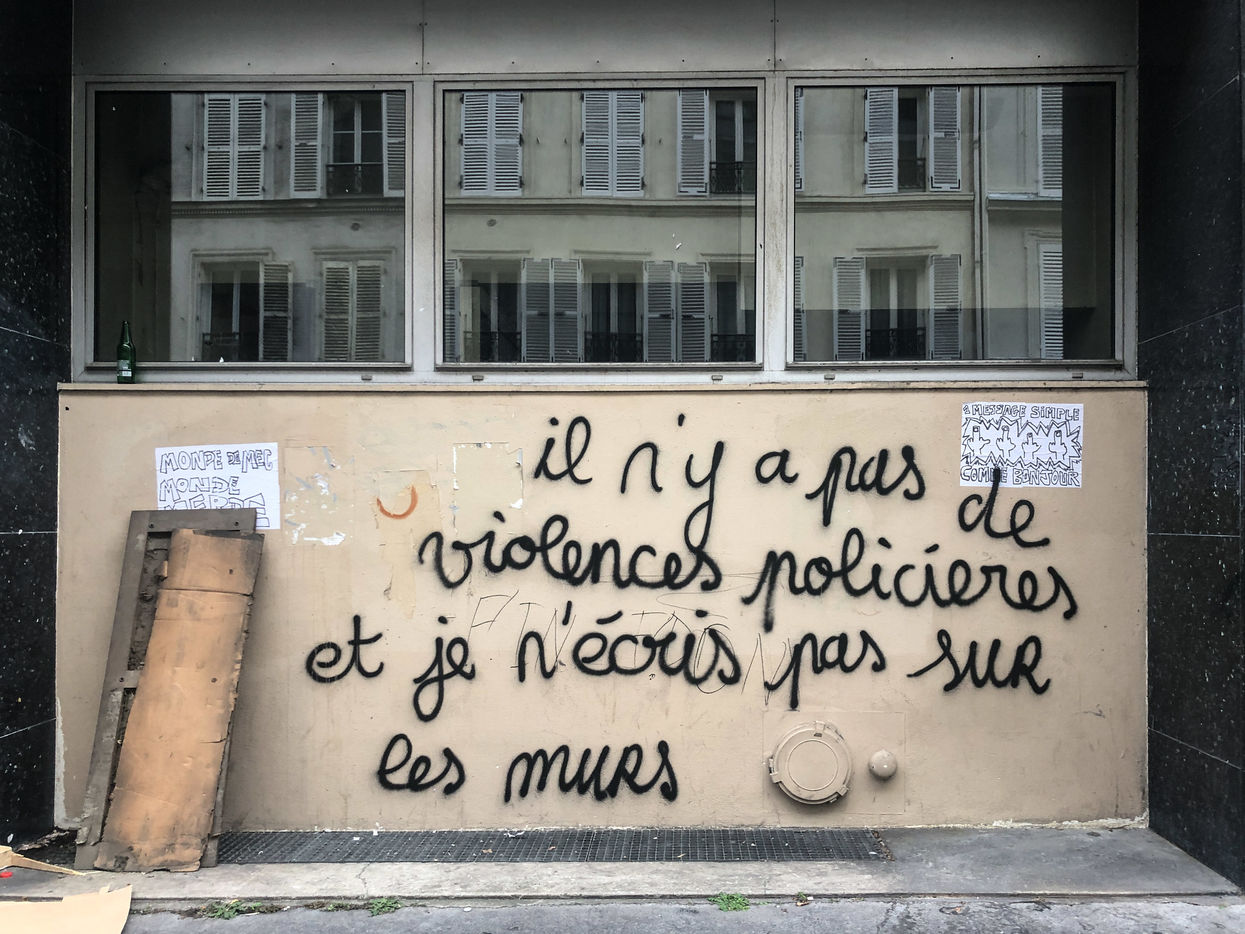 MONDE DE MEC
MONDE
MERDE
1 MESSAGE SIMPLE
COMME BONJOUR
il n'y a pas de
violences policieres
et je n'écris pas sur
les murs